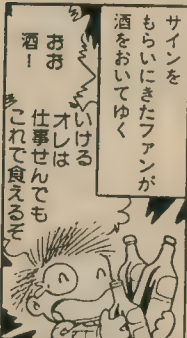 サインを
もらいにきたファンが
酒をおいてゆく
おお
酒!
いける
オレは
仕事せんでも
これで食えるぞ